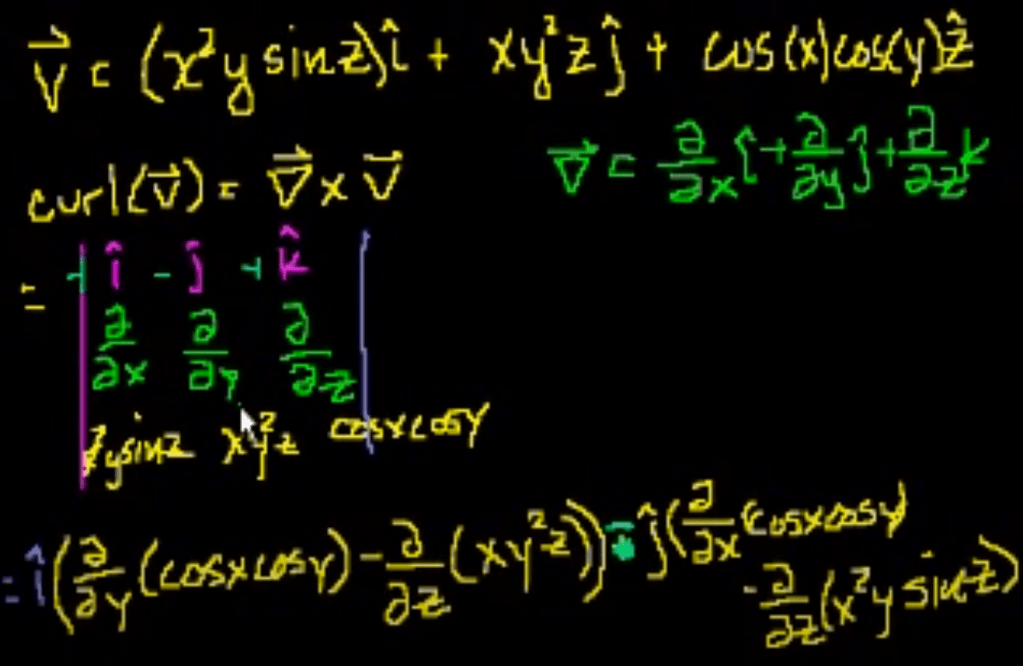 v⃗ = (x²y sinz)î + xy²z ĵ + cos(x)cos(y)ẑ
∇⃗ = ∂/∂x î + ∂/∂y ĵ + ∂/∂z k
curl(v⃗) = ∇⃗ x v⃗
= | + î - ĵ + k̂ |
∂/∂x ∂/∂y ∂/∂z
ysinz xy²z cosxcosy
= î(∂/∂y (cosxcosy) - ∂/∂z (xy²z)) - ĵ(∂/∂x (cosxcosy)
- ∂/∂z (x²y sinz)